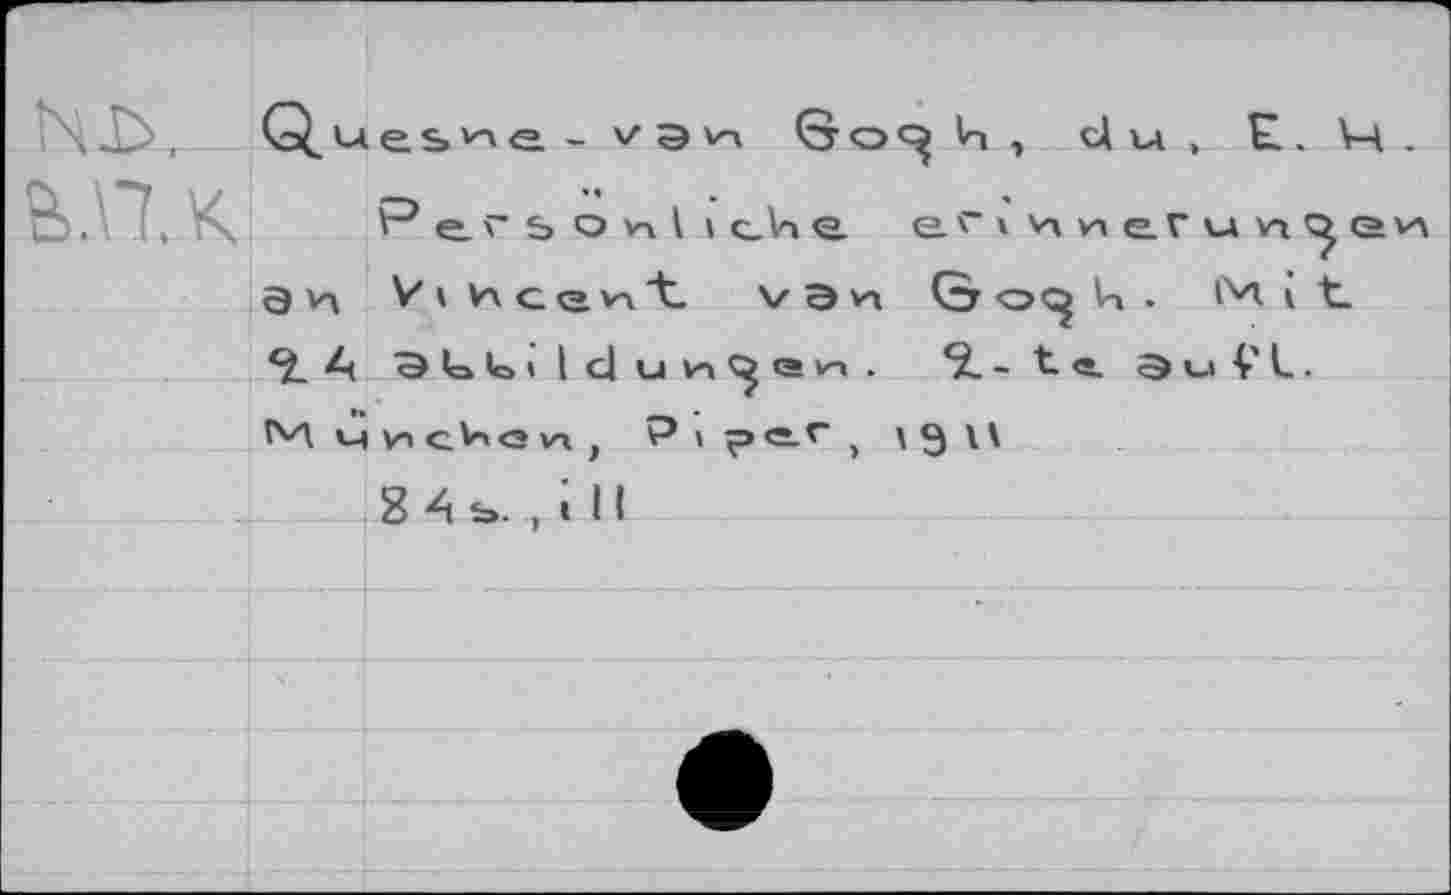 ND. Quesne-van Gogh, du, E. H.
В.П.К Persönliche erinnerungen
an Vincent van Gogh. Mit
24 abbildungen. 2-te aufl.
München, Piper, 1911
84 s., ill